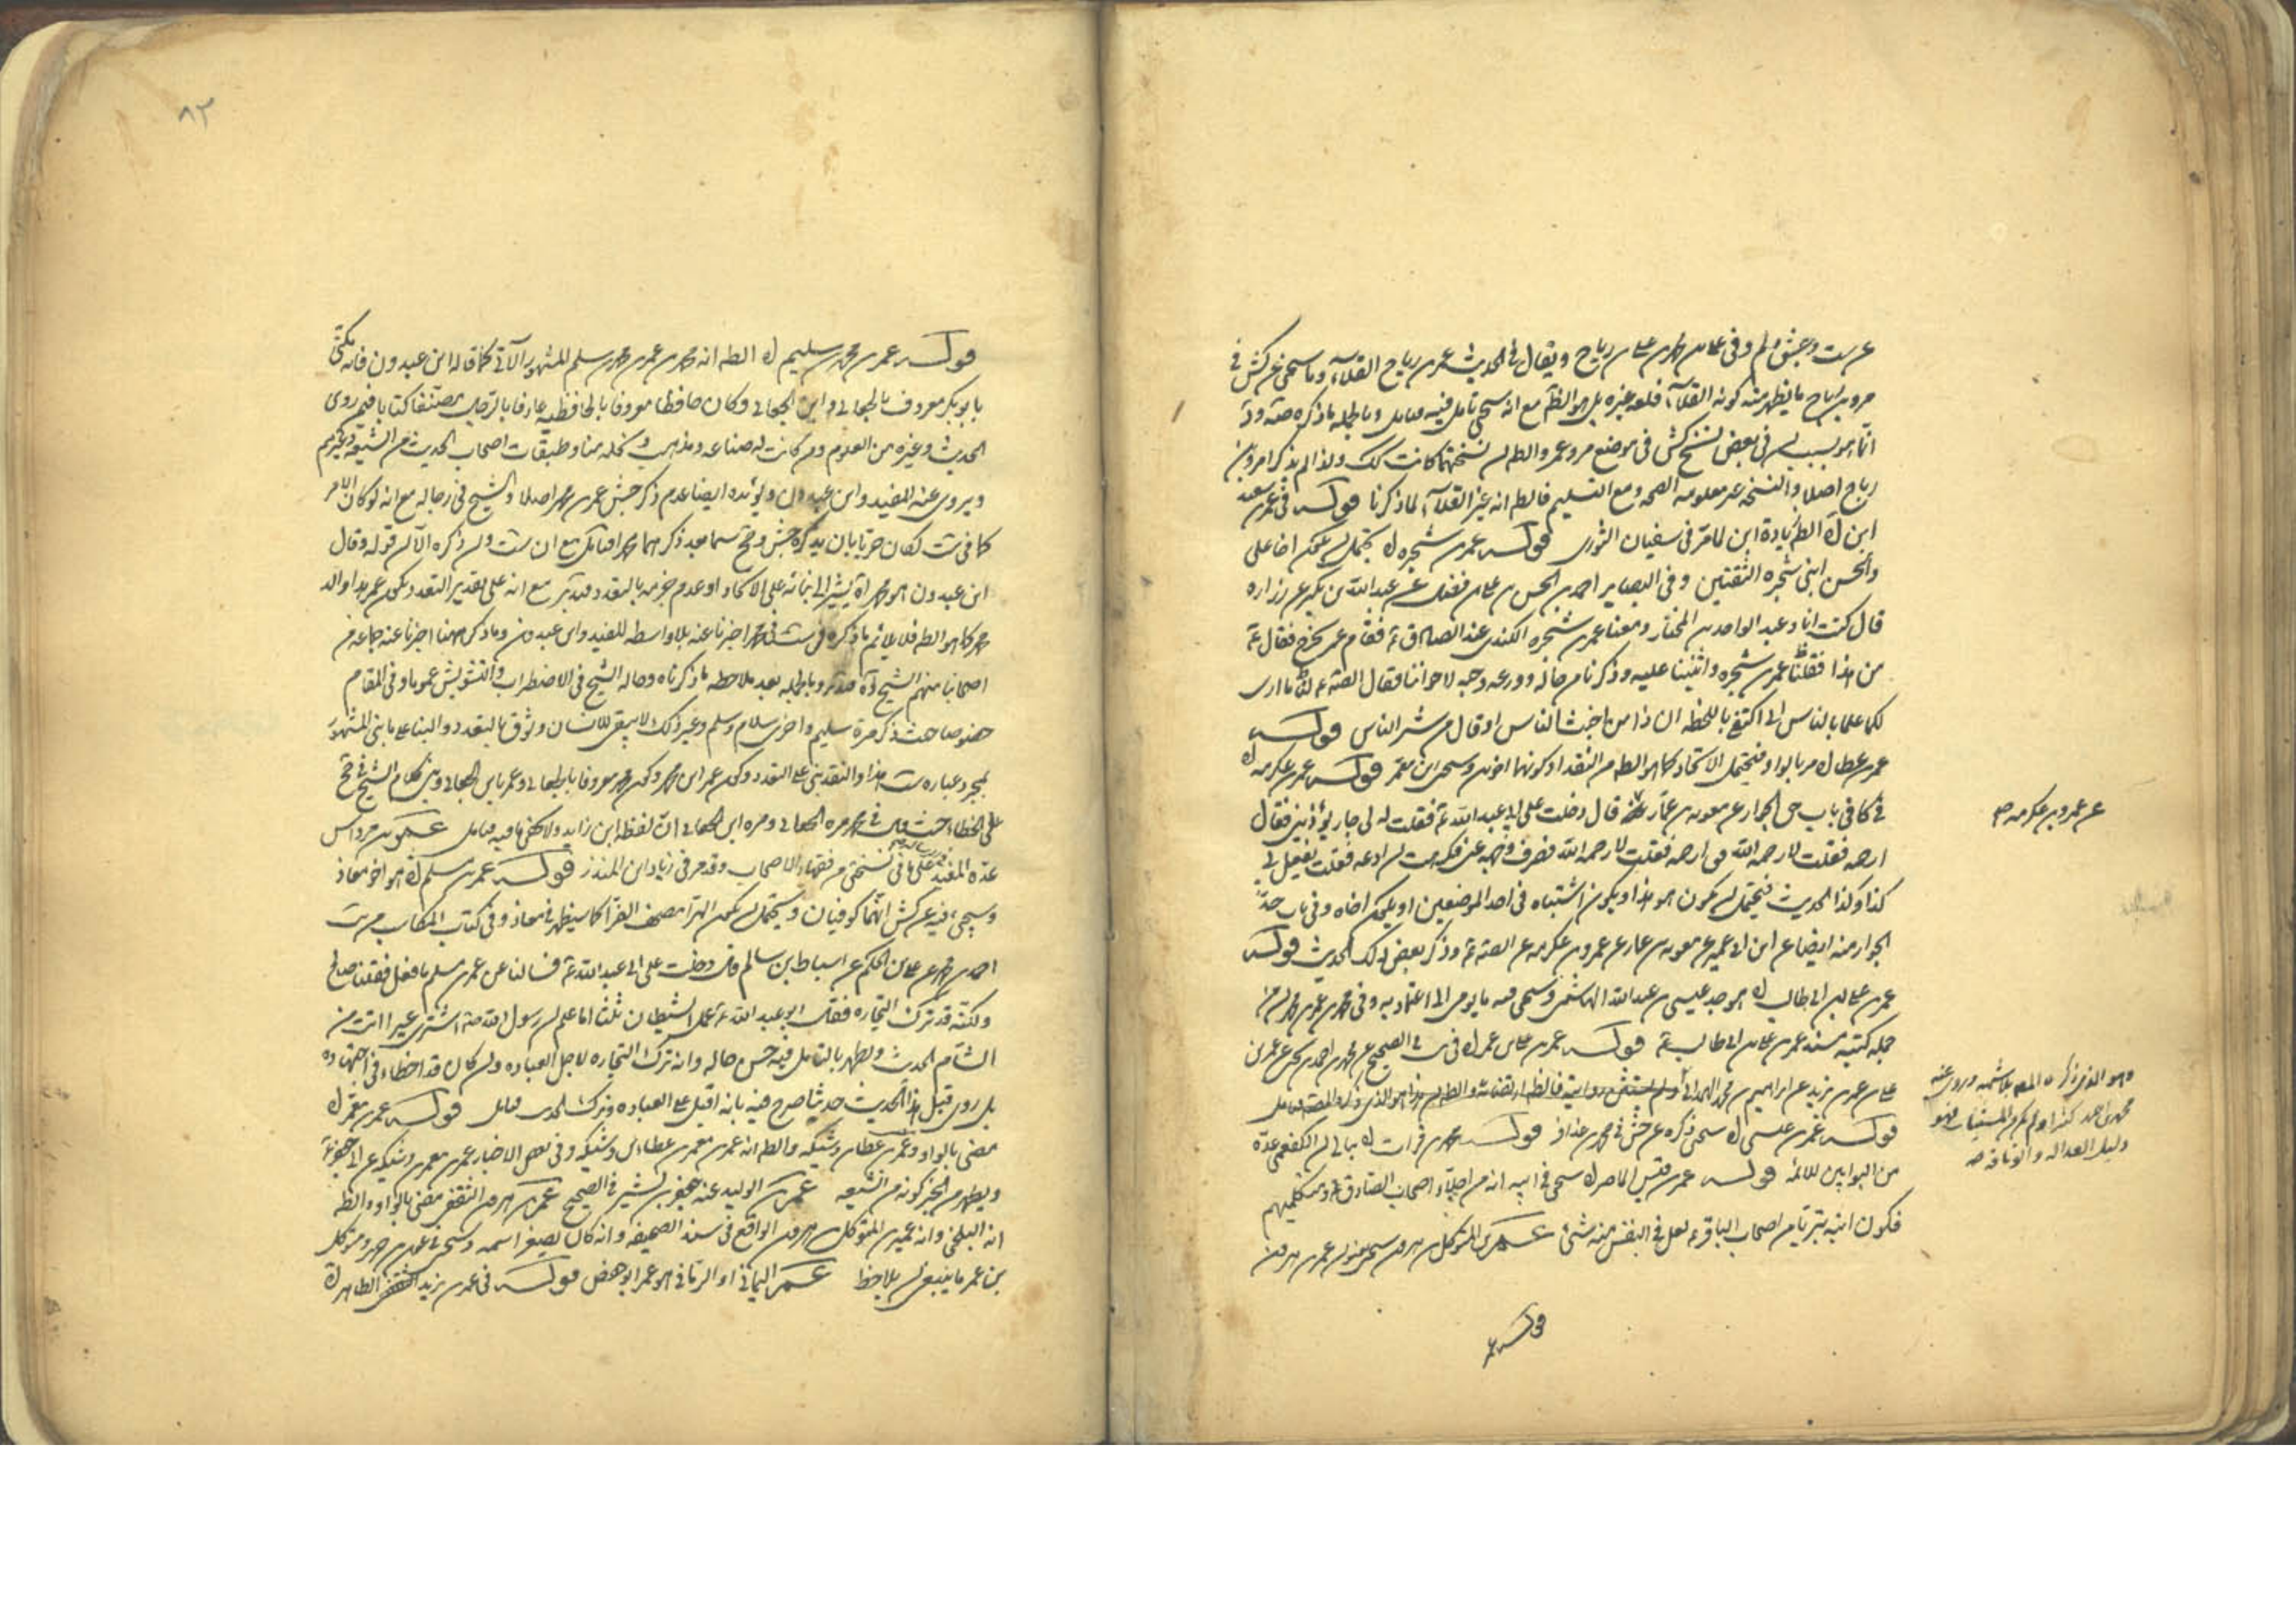 عن ست وجش ولم وفى على بن محمد بن على بن رباح ويقال فى الحديث عمر بن رباح القلآء وما سيجئ عن كش فى
عمر بن رباح ما يظهر منه كونه القلآء فلعله غيره بل هو الظ مع انه سيجئ تامل فيه فتامل وبالجمله ما ذكره صه ود
انما هو بسبب ان فى بعض نسخ كش فى موضع عمرو عمر والظ ان نسختهما كانت كك ولذا لم يذكرا عمرو بن
رباح اصلا والنسخه غير معلومه الصحه ومع التسليم فالظ انه غير القلآء لما ذكرنا قوله فى عمر بن سعيد
ابن ك الظ زيادة ابن لما مر فى سفيان الثورى قوله عمر بن شجره ك يحتمل ان يكون اخا على
والحسن ابنى شجره الثقتين وفى البصاير احمد بن الحسن بن على بن فضال عن عبد الله بن بكير عن زراره
قال كنت انا وعبد الواحد بن المختار ومعنا عمر بن شجره الكندى عند الصادق ع فقام عمر يخرج فقال ع
من هذا فقلنا عمر بن شجره واثنينا عليه وذكرنا من حاله وورعه وحبه لاخواننا فقال الصه ع لنا ما ارى
لكما علما بالناس انى اكتفى باللحظه ان ذا من اخبث الناس او قال من شر الناس قوله
عمر بن عطا ك مر بالواو فيحتمل الاتحاد كما هو الظ من النقد او كونهما اخوين وسيجئ ابن معمر قوله عمر بن عكرمه ك
فى كافى باب حق الجوار عن معويه بن عمار عنه قال دخلت على ابى عبد الله ع فقلت له لى جار يؤذينى فقال
ارحمه فقلت لا رحمه الله فصرف وجهه عنى فكرهت ان ادعه فقلت يفعل بى
كذا وكذا الحديث فيحتمل ان يكون هو هذا ويكون اشتباه فى احد الموضعين او يكون اخاه وفى باب حد
الجوار منه ايضا عن ابن ابى عمير عن معويه بن عمار عن عمرو بن عكرمه عن الصه ع وذكر بعض ذلك الحديث قوله
عمر بن على بن ابى طالب ك هو جد عيسى بن عبد الله الهاشمى وسيجئ فيه ما يومى الى اعتماد به وفى محمد بن عمر ان من
جمله كتبه مسند عمر بن على بن ابى طالب ع قوله عمر بن على بن عمر ك فى الصحيح عن محمد بن احمد بن يحيى عن عمر بن
على بن عمر بن يزيد عن ابراهيم بن محمد الهمدانى ولم يستثن روايته
قوله عمر بن عيسى ك سيجئ ذكره عن جش فى محمد بن عذافر قوله عمر بن فرات ك الكفعمى عده
من البوابين للائمه قوله عمر بن قيس الماصر ك سيجئ فى ابيه انه من اجلاء اصحاب الصادق ع ومتكلميهم
فكون ابنه بتريا من اصحاب الباقر ع لعل فى النفس منه شئ عمر بن المتوكل بن هرون سيجئ بعنوان عمر بن هرون
قوله عمر
عن عمرو بن عكرمه صح
محمد بن احمد كثيرا ولم يكن من المستثنيات وهو
دليل العداله والوثاقه صه
٨٢
قوله عمر بن محمد بن سليم ك الظ انه محمد بن عمر بن محمد بن سلم المشهور الآتى كما قاله ابن عبدون فانه مكنى
بابو بكر معروف بالجعابى وابن الجعابى وكان حافظا معروفا بالحافظ عارفا بالرجال مصنفا كتابا فيمن روى
الحديث وغيره من العلوم ومن كانت له صناعه ومذهب ونحله منا وطبقات اصحاب الحديث من الشيعه وغيرهم
ويروى عنه المفيد وابن عبدون ويؤيده ايضا عدم ذكر جش عمر بن محمد اصلا والشيخ فى رجاله مع انه لو كان الامر
كما فى ست لكان حريا بان يذكره جش وجخ سيما بعد ذكرهما محمدا
ابن عبدون هو محمد اه يشير الى بنائه على الاتحاد او عدم جزمه بالتعدد فتدبر مع انه على تقدير التعدد يكون عمر هذا والد
محمد كما هو الظ فلا يلائم ما ذكره فى ست فى محمد اخبرنا عنه بلا واسطه المفيد وابن عبدون وما ذكر ههنا اخبرنا عنه جماعه من
اصحابنا منهم الشيخ اه فتدبر وبالجمله بعد ملاحظه ما ذكرناه وحاله الشيخ فى الاضطراب والتشويش عموما وفى المقام
خصوصا حيث ذكر مرة سليم واخرى سلام وسلم وغير ذلك لا يبقى للانسان وثوق بالتعدد والبناء على ما بنى المشهور
بمجرد عباره ست هذا والنقد بنى على التعدد وكون عمر ابن محمد وكون محمد معروفا بالجعابى وعمر بابن الجعابى وبنى كلام الشيخ فى جخ
على الخطاء حيث قال فى محمد مره الجعابى ومره ابن الجعابى ان لفظه ابن زايد ولا يخفى ما فيه فتامل عمر بن مرداس
عده المفيد على ما فى نسختى من فقهاء الاصحاب وقد مر فى زياد ابن المنذر قوله عمر بن مسلم ك هو اخو معاذ
وسيجئ فيه عن كش انهما كوفيان ويحتمل ان يكون الهرآ مصحف الفرآ كما سيظهر فى معاذ وفى كتاب المكاسب من يب
احمد بن محمد عن على بن الحكم عن اسباط بن سالم قال دخلت على ابى عبد الله ع فسالنا عن عمر بن مسلم ما فعل فقلنا صالح
ولكنه قد ترك التجاره فقال ابو عبد الله ع عمل الشيطان ثلثا اما علم ان رسول الله ص اشترى عيرا اتت من
الشام الحديث ويظهر بالتامل فيه حسن حاله وانه ترك التجاره لاجل العباده وان كان قد اخطاء فى اجتهاده
بل روى قبل هذا الحديث حديثا صرح فيه بانه اقبل على العباده وترك التجارة فتامل قوله عمر بن معمر ك
مضى بالواو وعمر بن عطا بن وشيكه والظ انه عمر بن معمر بن عطا بن وشيكه وفى بعض الاخبار عمر بن معمر بن وشيكه عن ابى جعفر ع
ويظهر من الخبر كونه من الشيعه عمر بن الوليد عنه جعفر بن بشير فى الصحيح عمر بن هرون الثقفى مضى بالواو والظ
انه البلخى وانه عمير بن المتوكل بن هرون الواقع فى سند الصحيفه وانه كان يصغر اسمه وسيجئ فى عمير بن هرون متوكل
بن عمر ما ينبغى ان يلاحظ عمر اليمانى او الرمانى هو عمر ابو حفص قوله فى عمر بن يزيد الثقفى الظاهر ك